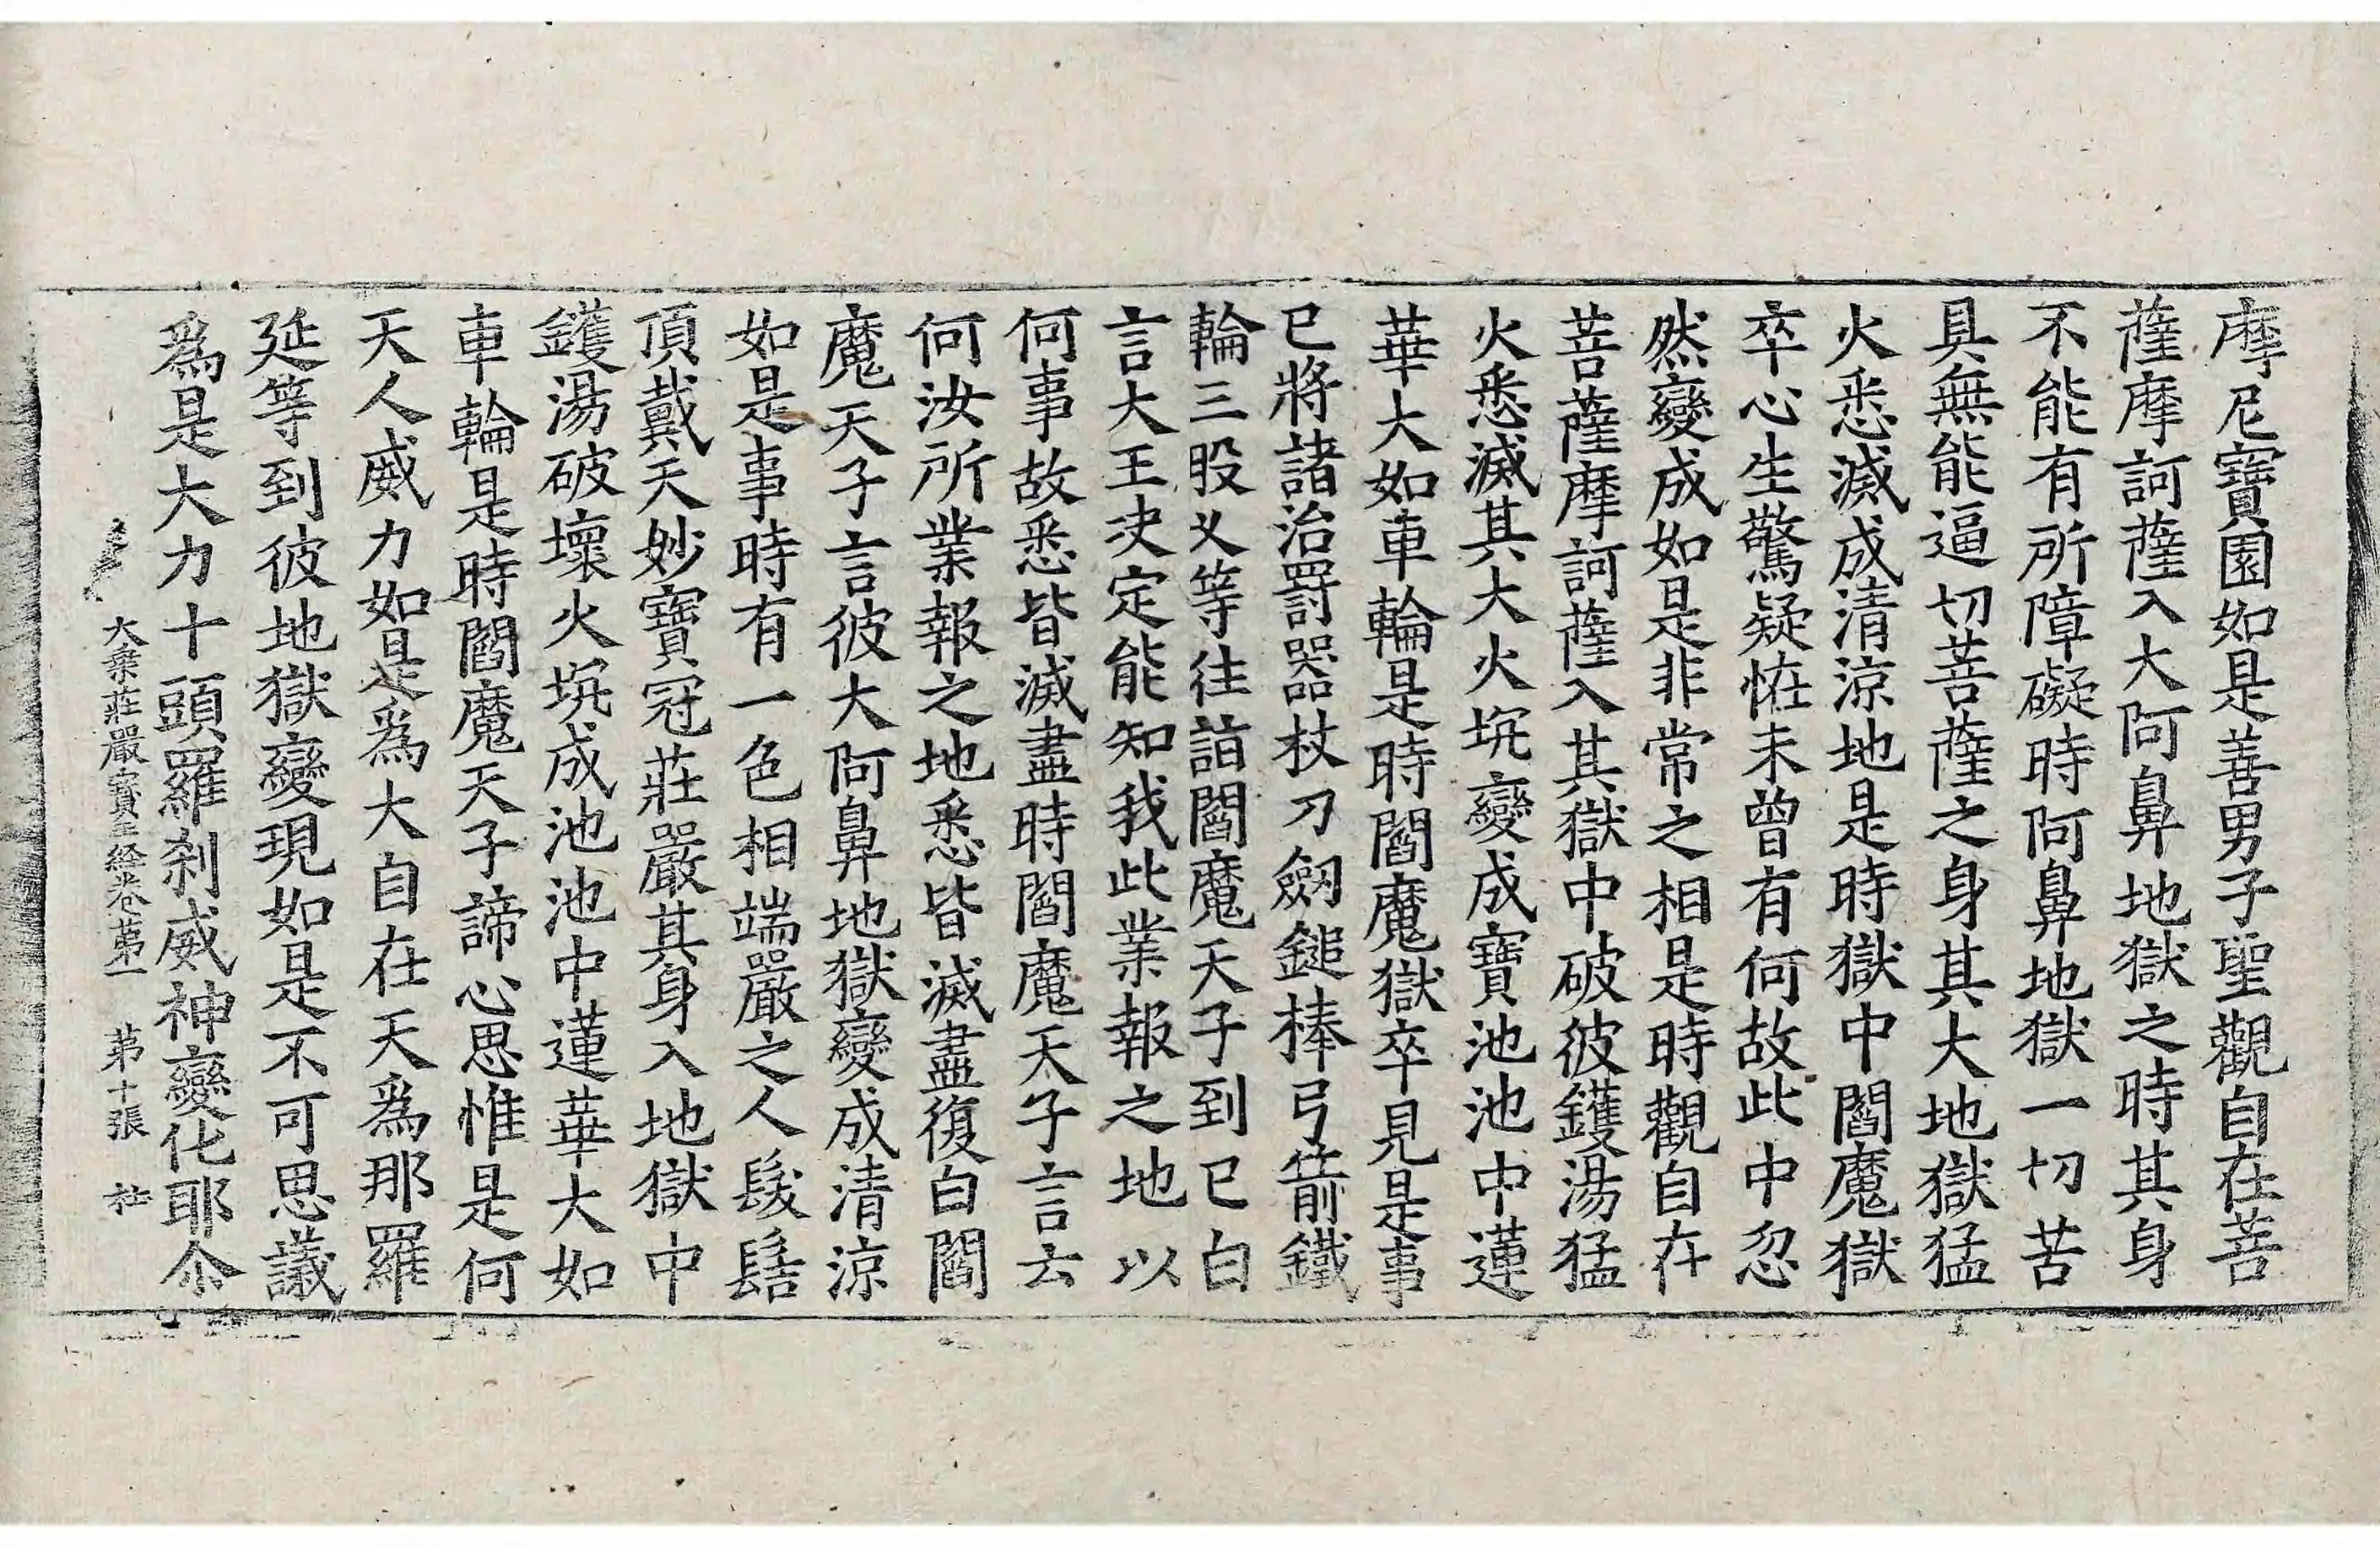 摩尼寶園如是善男子聖觀自在菩
薩摩訶薩入大阿鼻地獄之時其身
不能有所障礙時阿鼻地獄一切苦
具無能逼切菩薩之身其大地獄猛
火悉滅成清涼地是時獄中閻魔獄
卒心生驚疑恠未曾有何故此中忽
然變成如是非常之相是時觀自在
菩薩摩訶薩入其獄中破彼鑊湯猛
火悉滅其大火坑變成寶池池中蓮
華大如車輪是時閻魔獄卒見是事
已將諸治罰器杖刀劒鎚棒弓箭鐵
輪三股叉等往詣閻魔天子到已白
言大王决定能知我此業報之地以
何事故悉皆滅盡時閻魔天子言云
何汝所業報之地悉皆滅盡復白閻
魔天子言彼大阿鼻地獄變成清涼
如是事時有一色相端嚴之人髮髻
頂戴天妙寶冠莊嚴其身入地獄中
鑊湯破壞火坑成池池中蓮華大如
車輪是時閻魔天子諦心思惟是何
天人威力如是爲大自在天爲那羅
延等到彼地獄變現如是不可思議
爲是大力十頭羅刹威神變化耶尒
大乗莊嚴寶王経卷苐一　苐十張